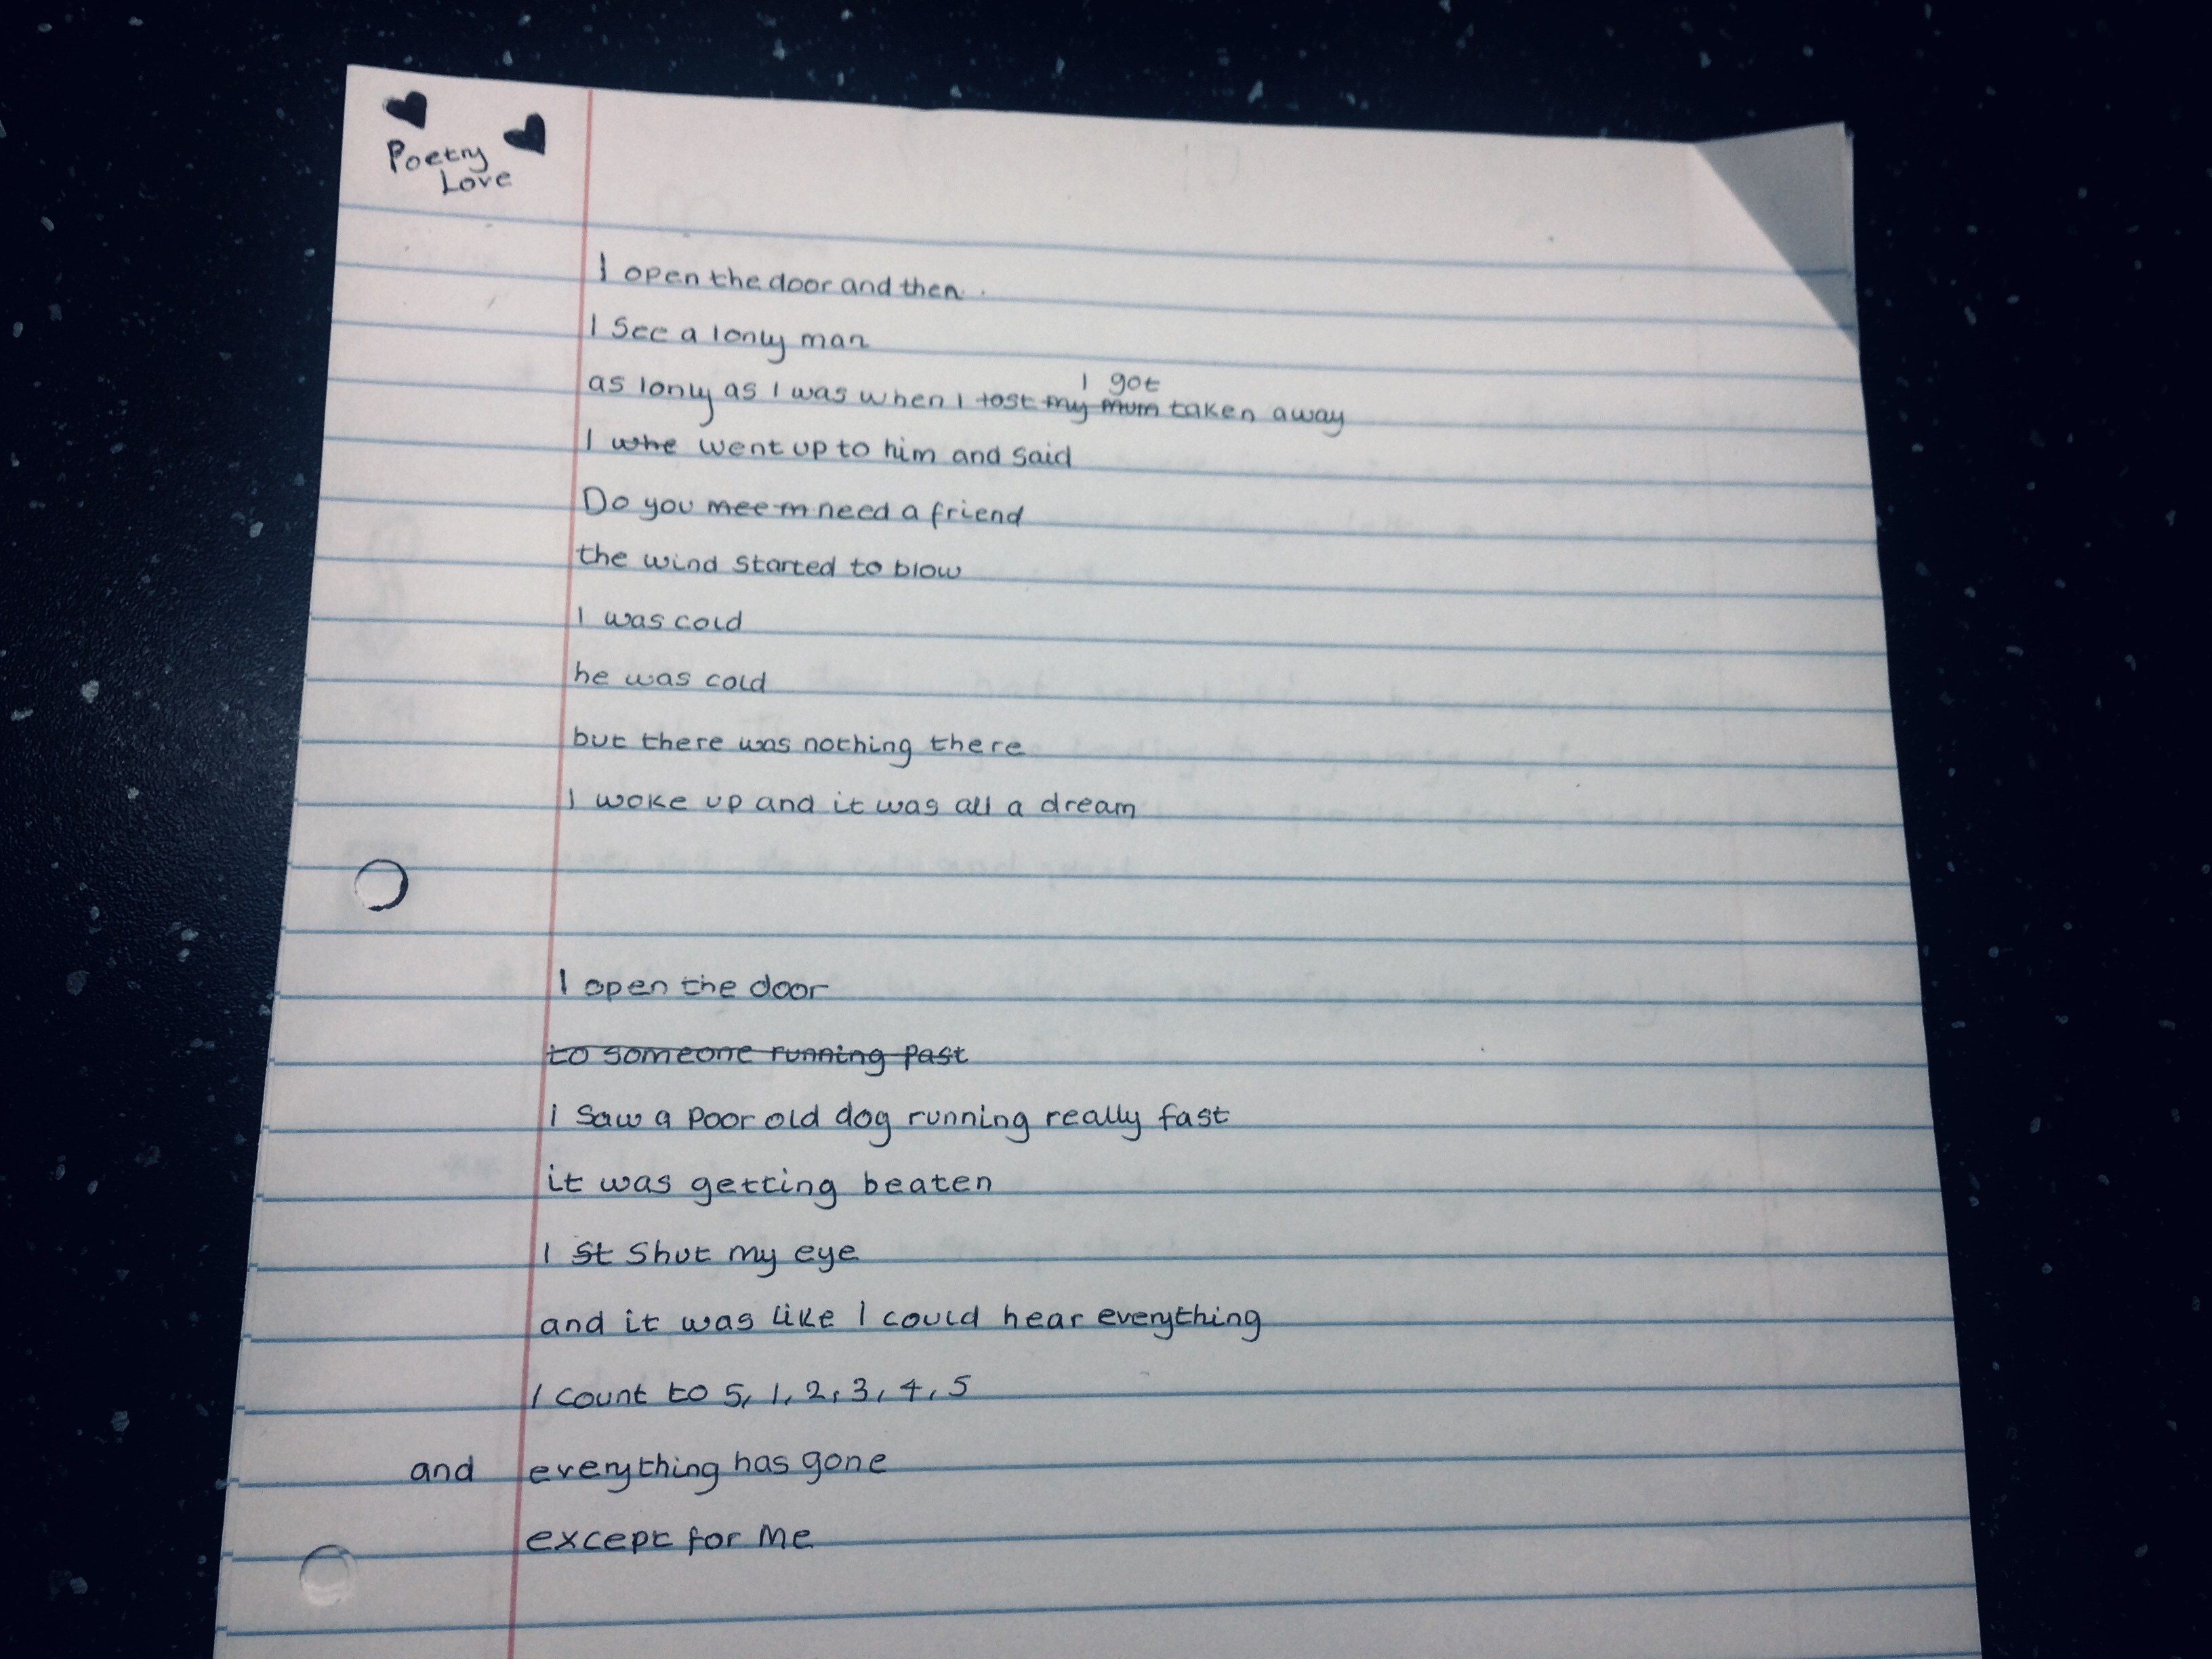 Poetry
Love
I open the door and then.
I see a lonly man
I got
as lonly as I was when I ~~lost my mum~~ taken away
I ~~whe~~ went up to him and said
Do you ~~mee m~~ need a friend
the wind started to blow
I was cold
he was cold
but there was nothing there
I woke up and it was all a dream
I open the door
~~to someone running past~~
I Saw a poor old dog running really fast
it was getting beaten
I ~~st~~ Shut my eye
and it was like I could hear everything
I count to 5, 1, 2, 3, 4, 5
and everything has gone
except for Me